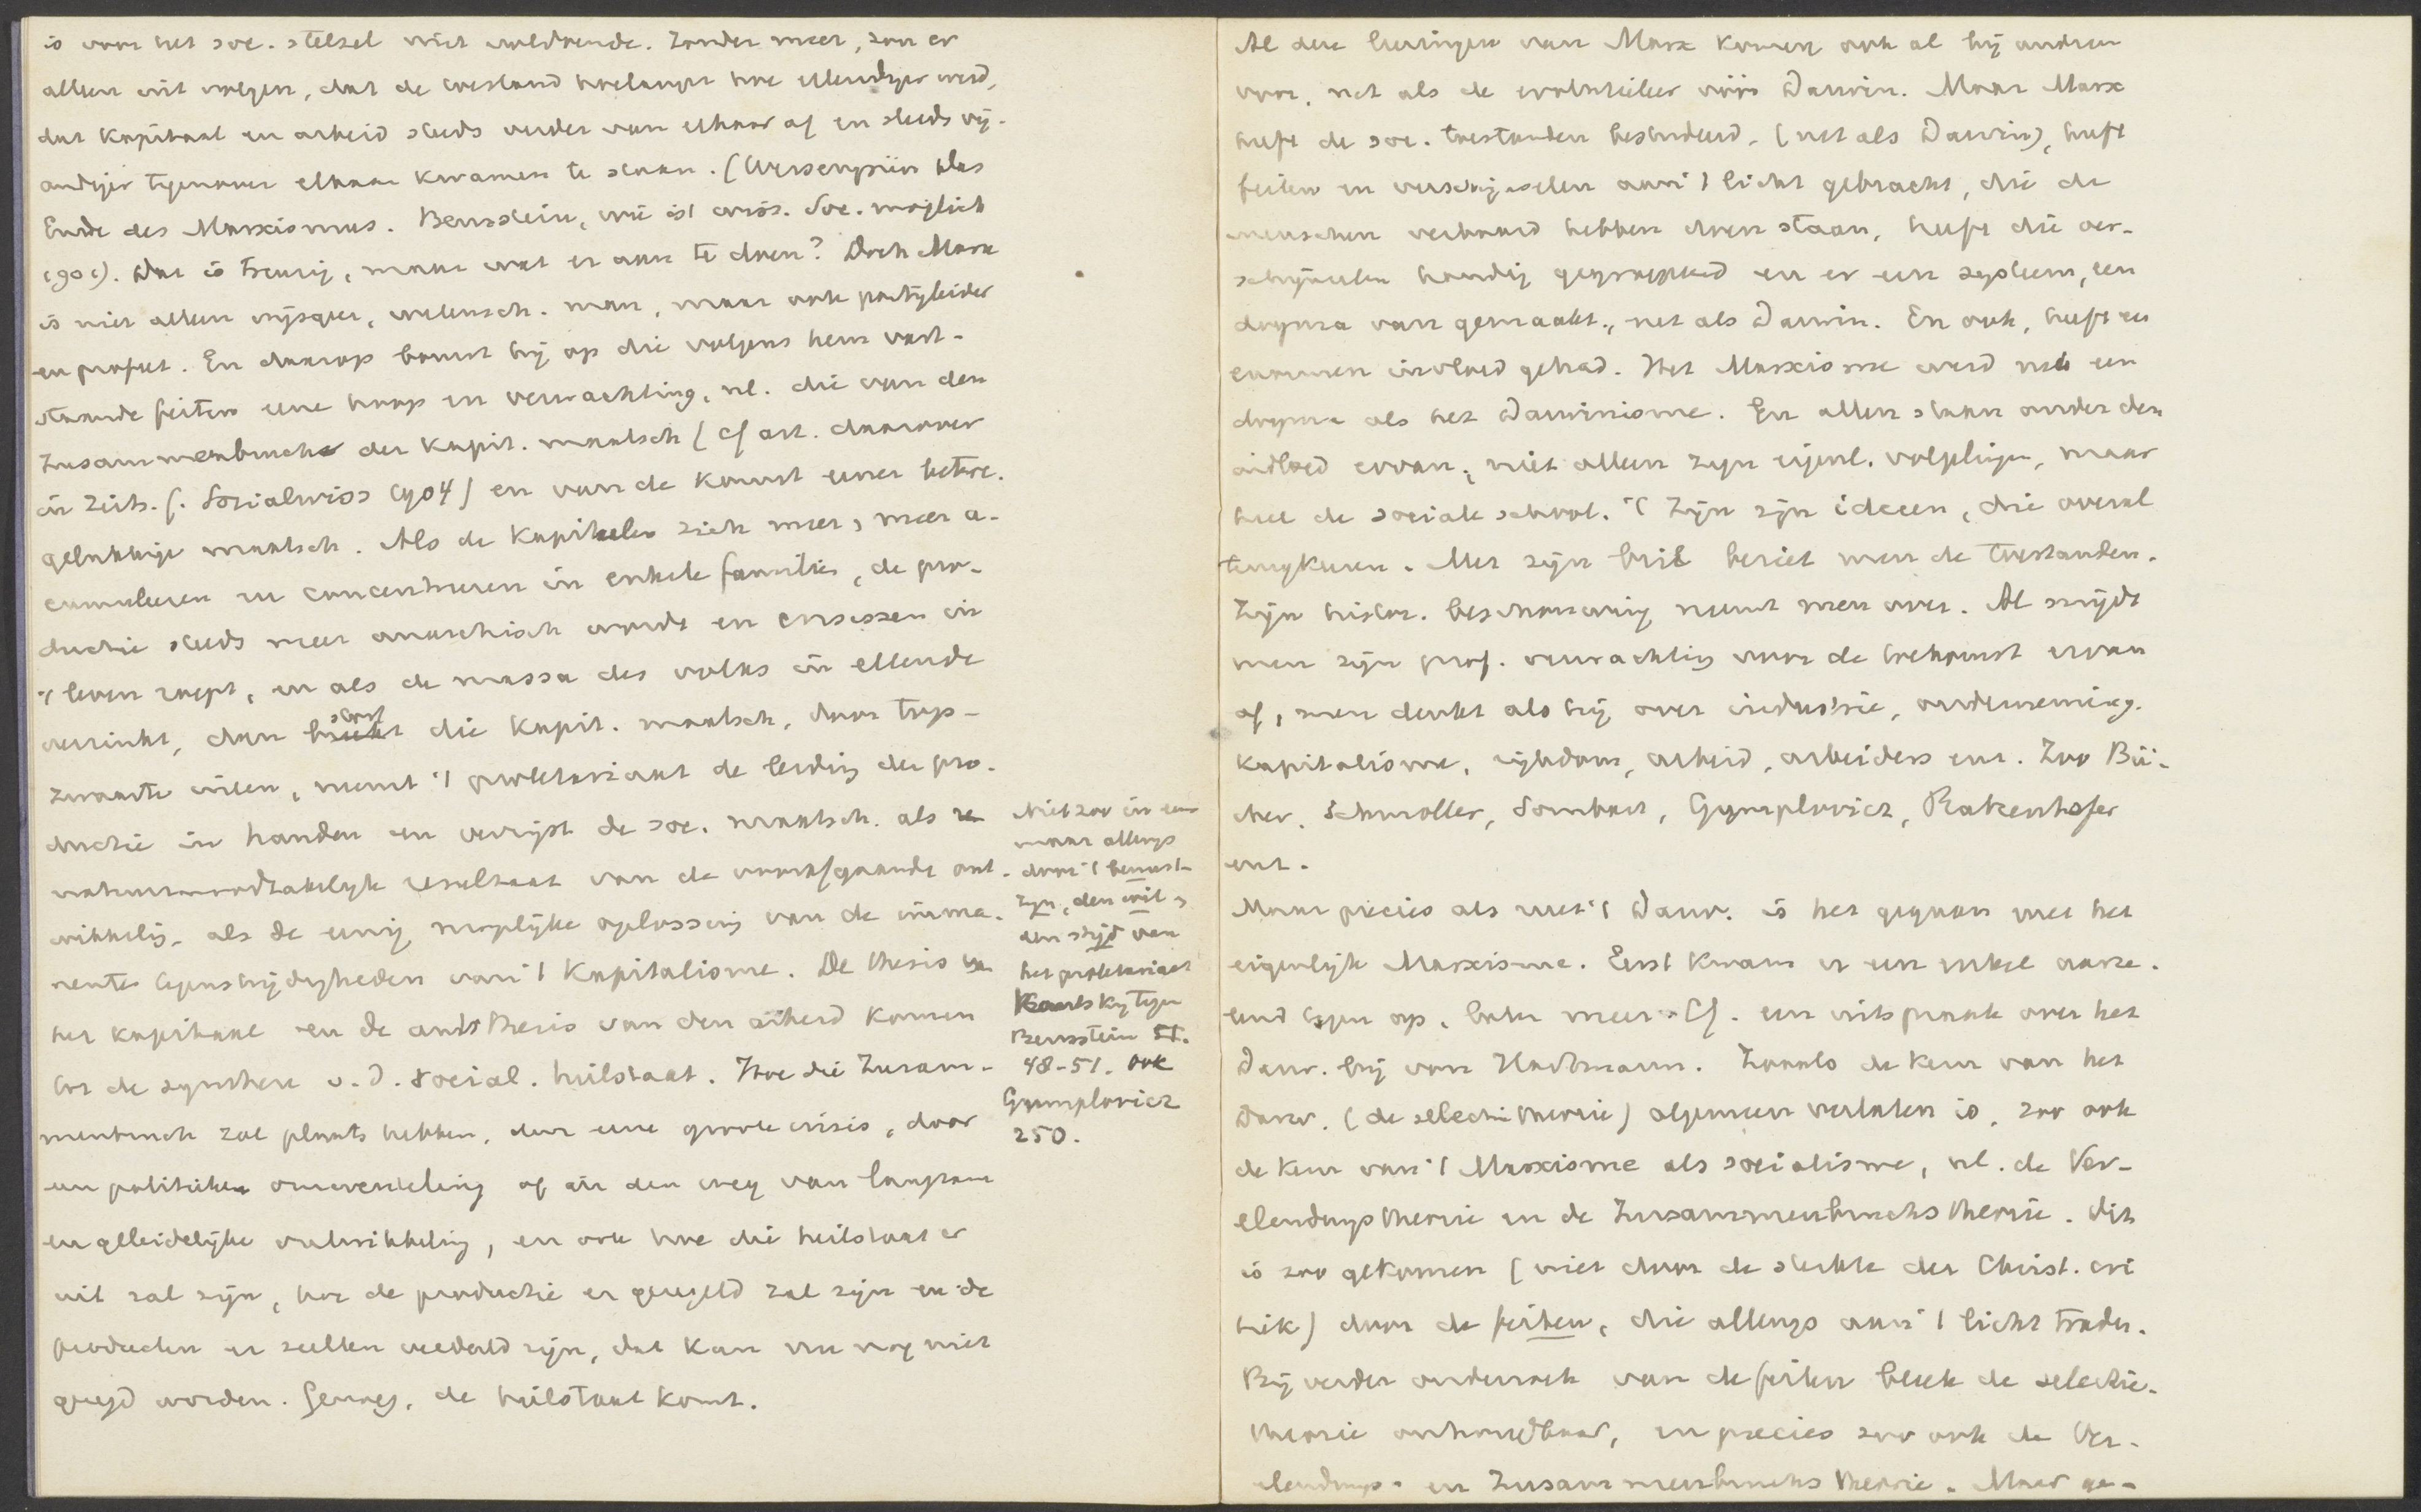 is voor het soc. stelsel niet voldoende. Zonder meer, zou er
alleen uit volgen, dat de toestand hoelanger hoe ellendiger werd,
dat kapitaal en arbeid steeds verder van elkaar af en steeds vij-
andiger tegenover elkaar kwamen te staan. (Wersenprün Das
Ende des Marxismus. Bernstein, wie ist wiss. Soc. möglich
1901). Dat is treurig, maar wat er aan te doen? Doch Marx
is niet alleen wijsgeer, wetensch. man, maar ook partijleider
en profeet. En daarop bouwt hij op die volgens hem vast-
staande feiten eene hoop en verwachting, nl. die van den
Zusammenbruch der kapit. maatsch (cf art. daarover
in Zeits. f. Socialwiss 1904) en van de komst eener betere.
gelukkige maatsch. Als de kapitalen zich meer, meer a-
cumuleeren en concentreeren in enkele familiës, de pro-
ductie steeds meer anarchisch wordt en crisessen in
't leven roept, en als de massa des volks in ellende
verzinkt, dan stort die kapit. maatsch, door top-
zwaarte ineen, neemt 't proletariaat de leiding der pro-
ductie in handen en verrijst de soc. maatsch. als
natuurnoodzakelijk resultaat van de voorafgaande ont-
wikkelig, als de eenig mogelijke oplossing van de imma-
nente tegenstrijdigheden van 't kapitalisme. De thesis van
het kapitaal en de antithesis van den arbeid komen
tot de synthese v. d. social. heilstaat. Hoe die Zusam-
menbruch zal plaats hebben, door eene groote crisis, door
een politieke omwenteling of in den weg van langzame
en geleidelijke ontwikkeling, en ook hoe die heilstaat er
uit zal zijn, hoe de productie er geregeld zal zijn en de
producten er zullen verdeeld zijn, dat kan nu nog niet
gezegd worden. Genoeg, de heilstaat komt.
Niet zoo in eens
maar allengs
door 't bewust-
zijn, den wil,
den strijd van
het proletariaat
Kautsky tegen
Bernstein St.
48-51. ook
Gumplovicz
250.
Al deze leeringen van Marx komen ook al bij anderen
voor, net als de evolutieleer vóór Darwin. Maar Marx
heeft de soc. toestanden bestudeerd, (net als Darwin), heeft
feiten en verschijnselen aan 't licht gebracht, die de
menschen verbaasd hebben doen staan, heeft die ver-
schijnselen handig gegroepeerd en er een systeem, een
dogma van gemaakt., net als Darwin. En ook, heeft een
enormen invloed gehad. Het Marxisme werd net een
dogma als het Darwinisme. En allen staan onder den
invloed ervan, niet alleen zijn eigenl. volgelingen, maar
heel de sociale school. 't Zijn zijn ideeen, die overal
terugkeeren. Met zijn bril beziet men de toestanden.
Zijn histor. beschouwing neemt men over. Al snijdt
men zijn prof. verwachting voor de toekomst ervan
af, men denkt als hij over industrie, onderneming.
kapitalisme, rijkdom, arbeid, arbeiders enz. Zoo Bü-
cher, Schmoller, Sombart, Gumplovicz, Ratzenhofer
enz.
Maar precies als met 't Darw. is het gegaan met het
eigenlijk Marxisme. Eerst kwam er een enkel aarze-
lend tegen op, later meer. Cf. een uitspraak over het
Darw. bij von Hartmann. Zooals de kern van het
Darw. (de selectie theorie) algemeen verlaten is, zoo ook
de kern van 't Marxisme als socialisme, nl. de Ver-
elendungs theorie en de Zusammenbruchs theorie. Dit
is zoo gekomen (niet door de sterkte der Christ. cri
tiek) door de feiten, die allengs aan 't licht traden.
Bij verder onderzoek van de feiten bleek de selectie-
theorie onhoudbaar, en precies zoo ook de Ver-
elendungs- en Zusammenbruchs theorie. Maar ge-